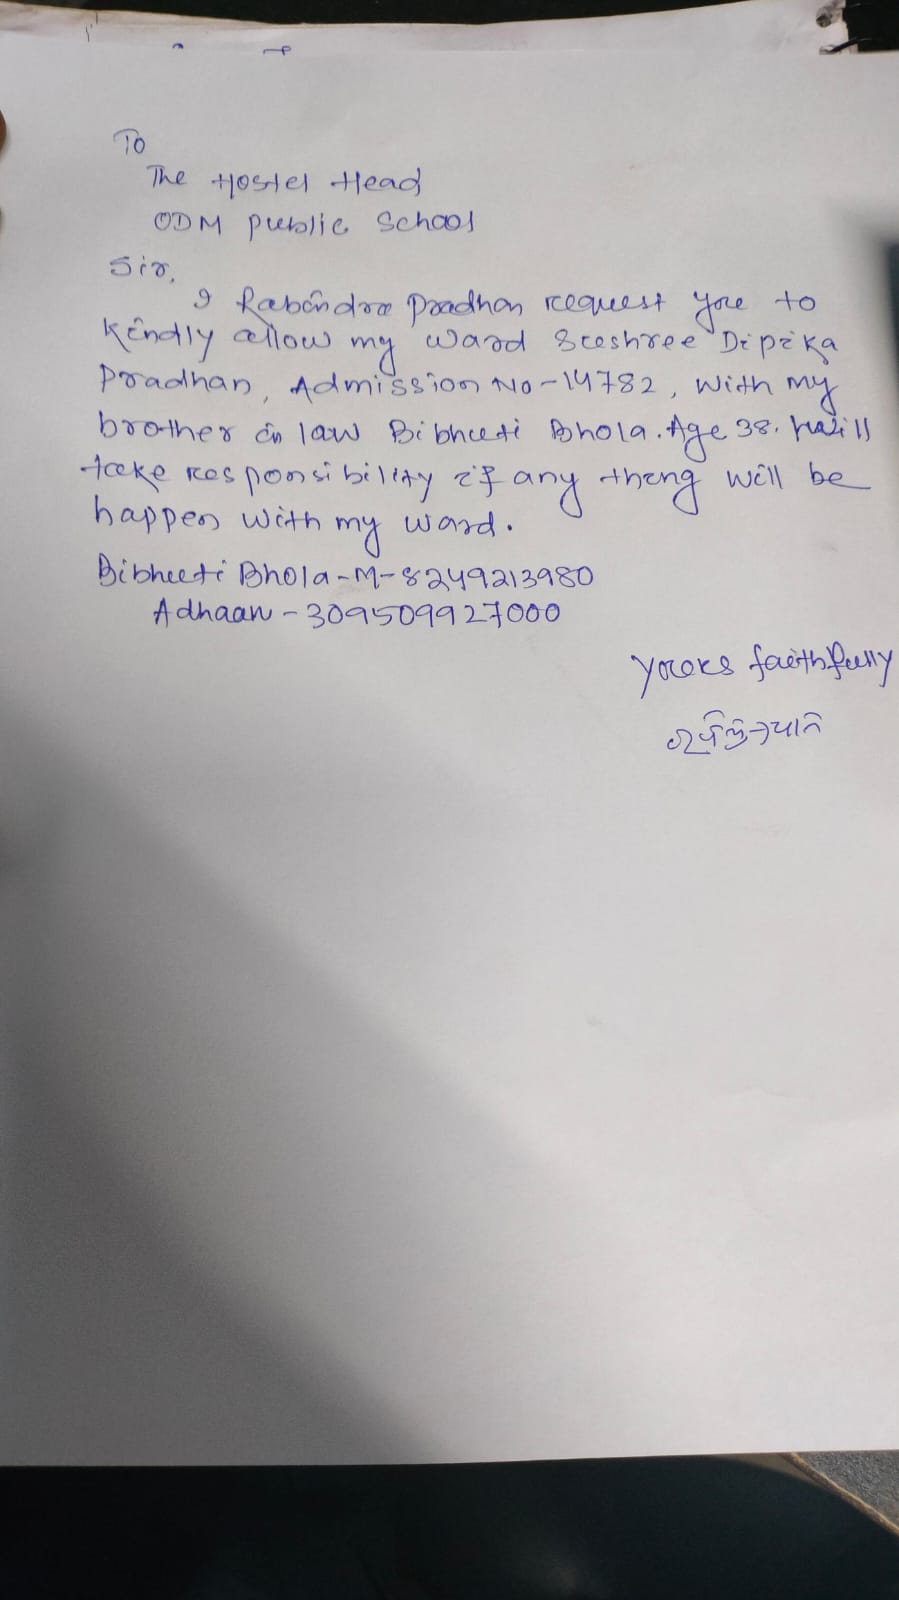 To
The Hostel Head
ODM Public School
Sir,
I Rabindra Pradhan request you to
kindly allow my ward Subhashree Dipika
Pradhan, Admission No-14782, with my
brother in law Bibhuti Bhola. Age 38. I will
take responsibility if any thing will be
happen with my ward.
Bibhuti Bhola-M-8249213980
Adhaar - 309509927000
Yours faithfully